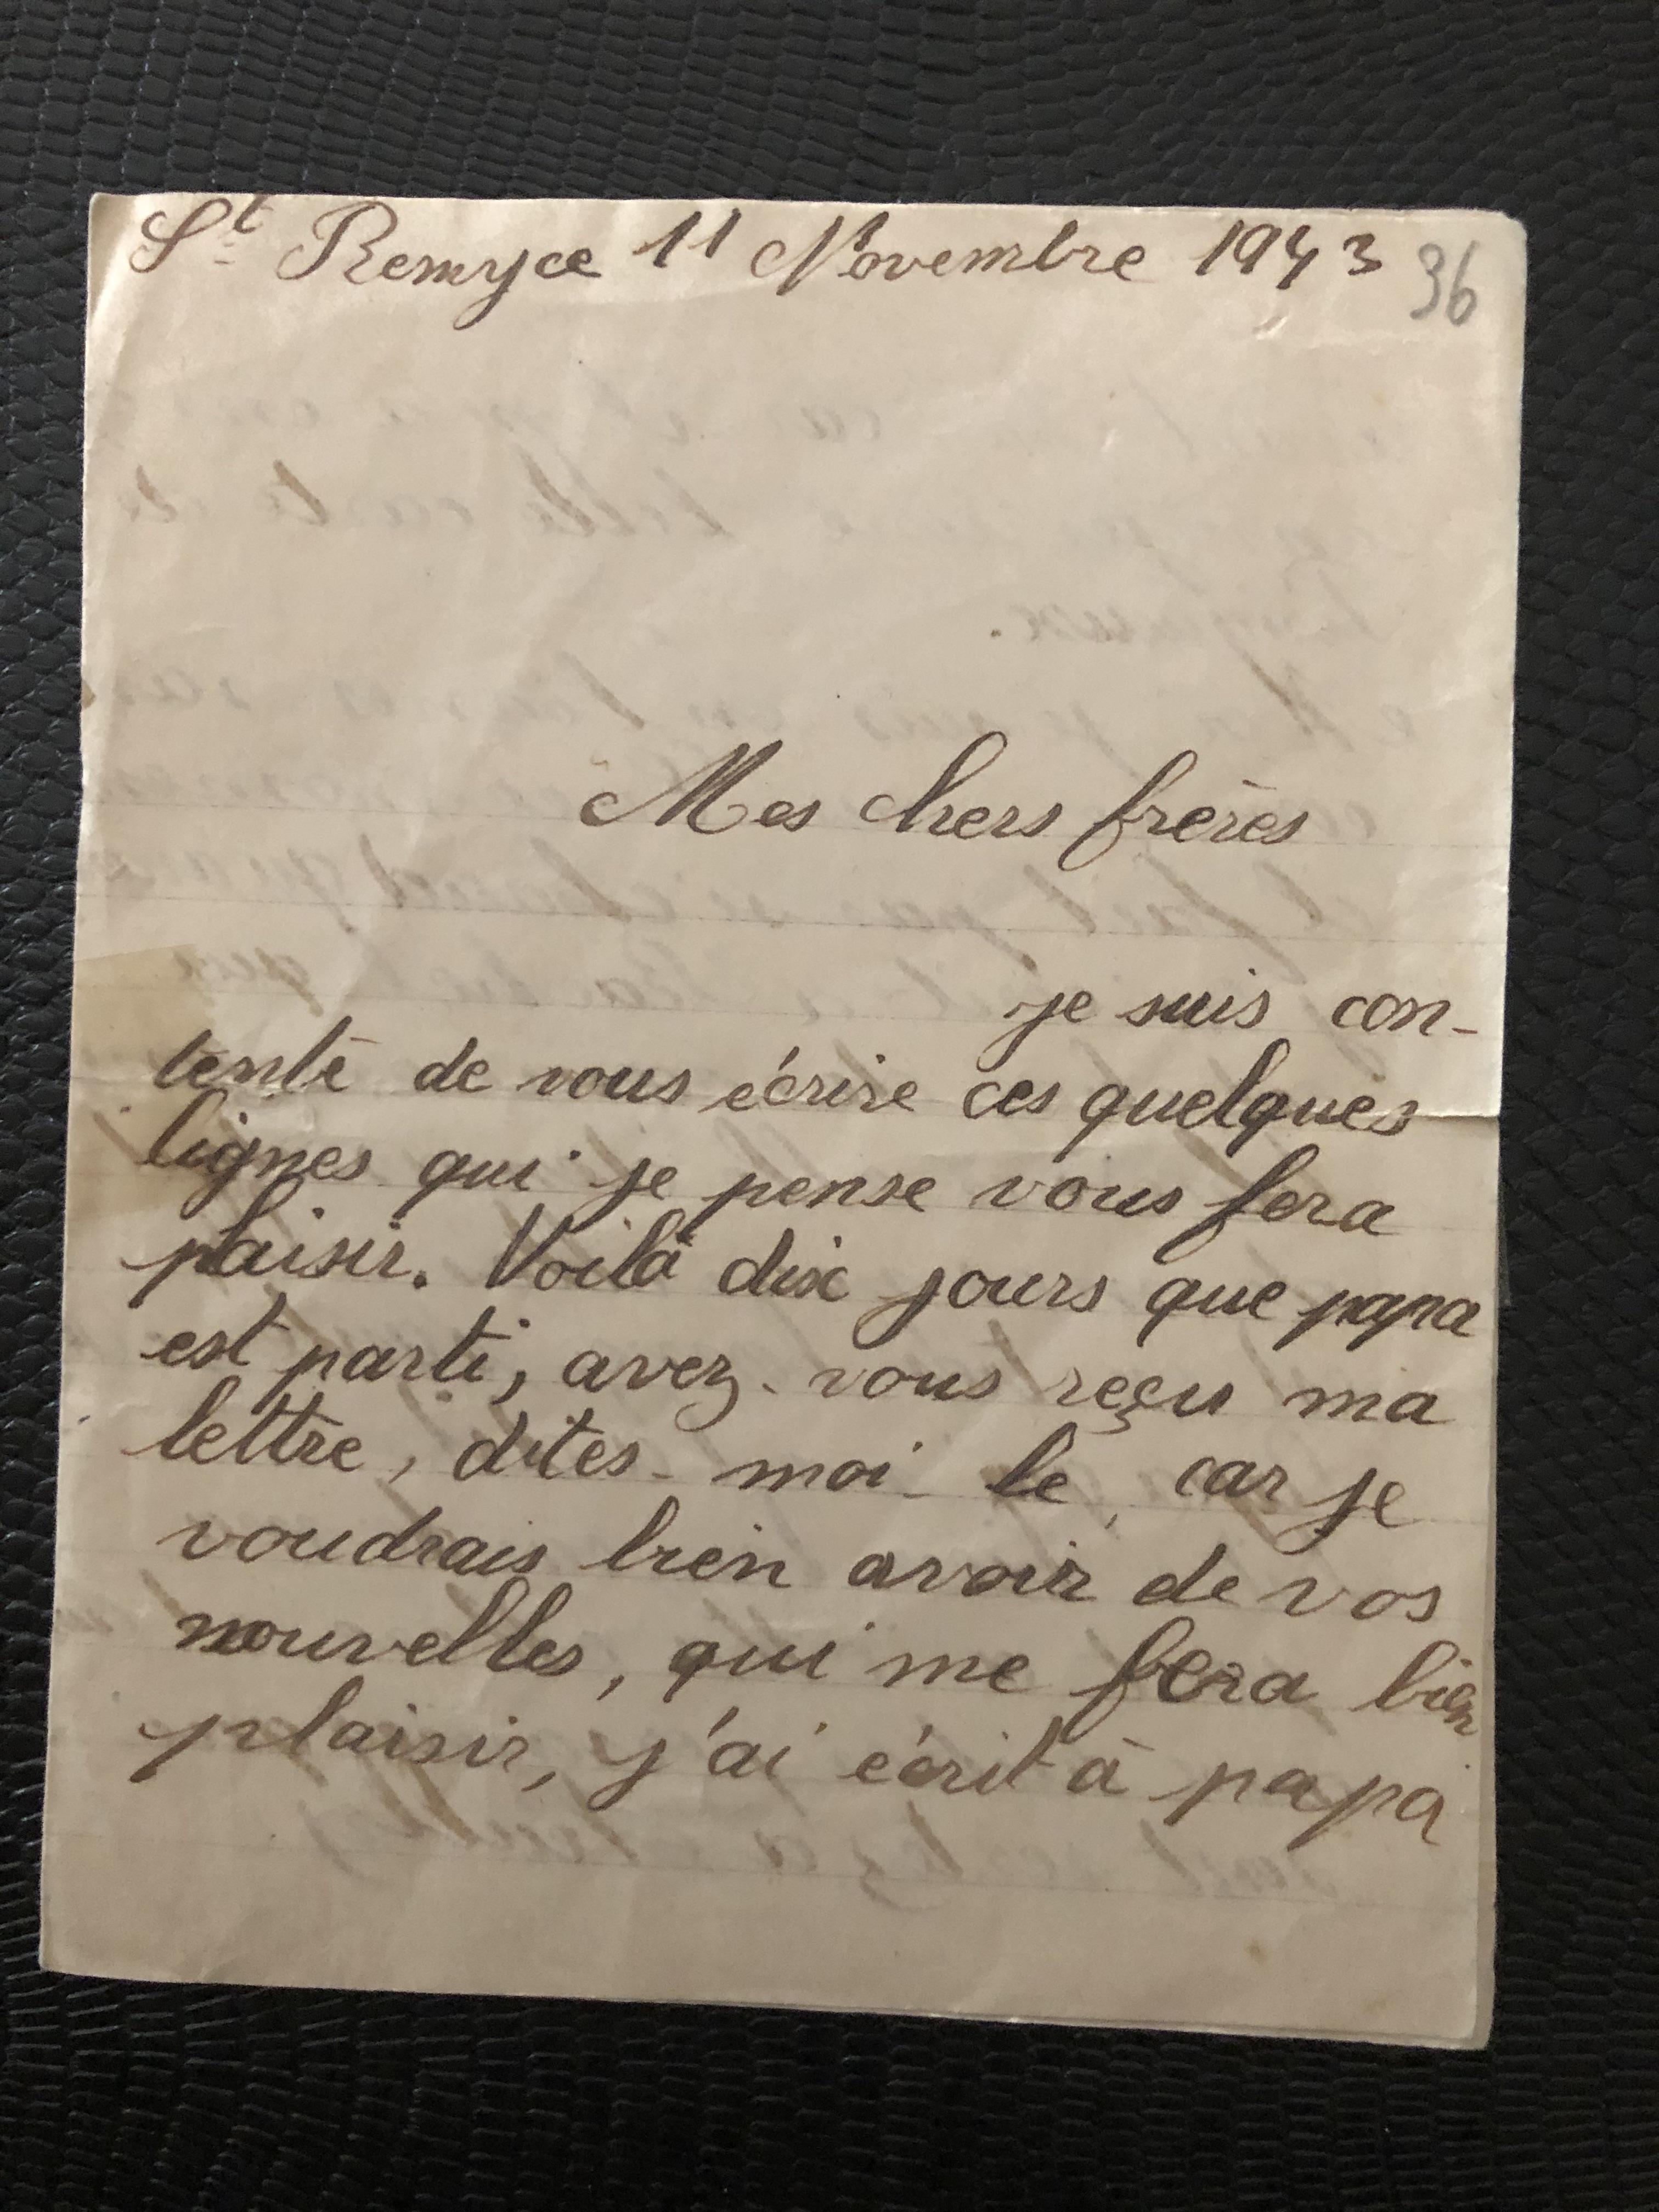 St Remy ce 11 Novembre 1943
36
Mes chers frères
je suis con-
tente de vous écrire ces quelques
lignes qui je pense vous fera
plaisir. Voilà dix jours que papa
est parti, avez-vous reçu ma
lettre, dites-moi-le, car je
voudrais bien avoir de vos
nouvelles, qui me fera bien
plaisir, j'ai écrit à papa